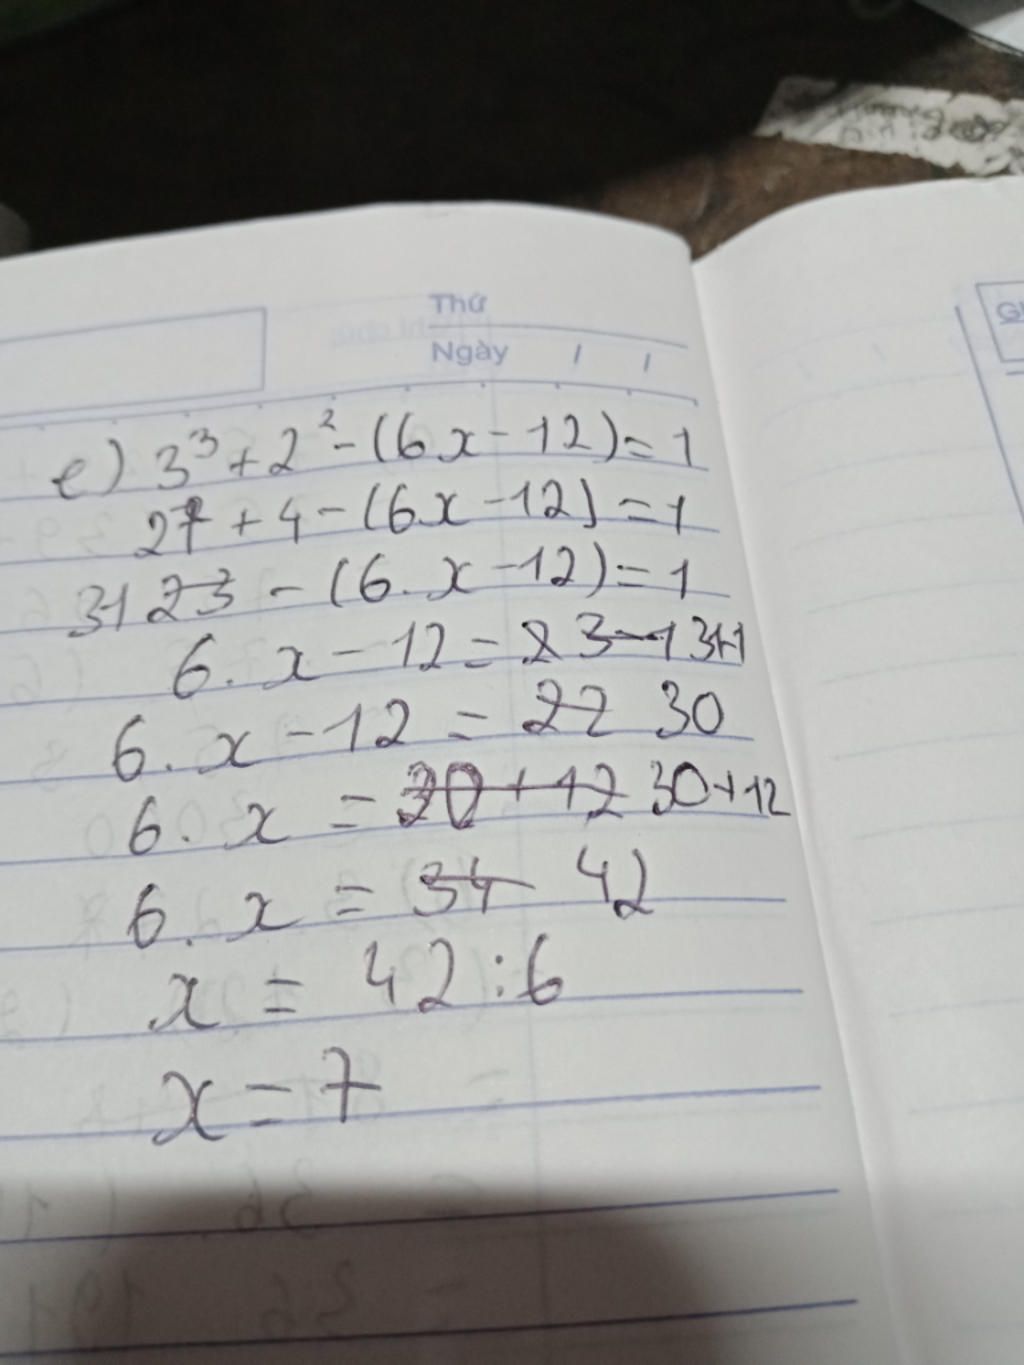 Thứ
Ngày / /
e) 3³ + 2² - (6x - 12) = 1
27 + 4 - (6.x - 12) = 1
31 23 - (6.x - 12) = 1
6.x - 12 = 23 - 1 31-1
6.x - 12 = 22 30
6.x = 30 + 12 30+12
6.x = 34 42
x = 42 : 6
x = 7